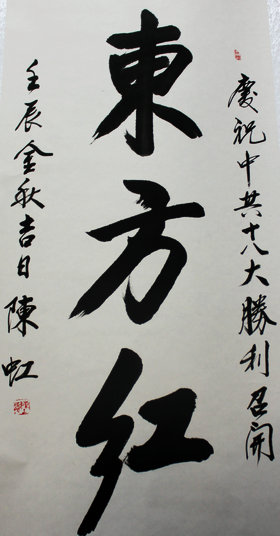 慶祝中共十八大勝利召開
東方红
壬辰金秋吉日陳虹